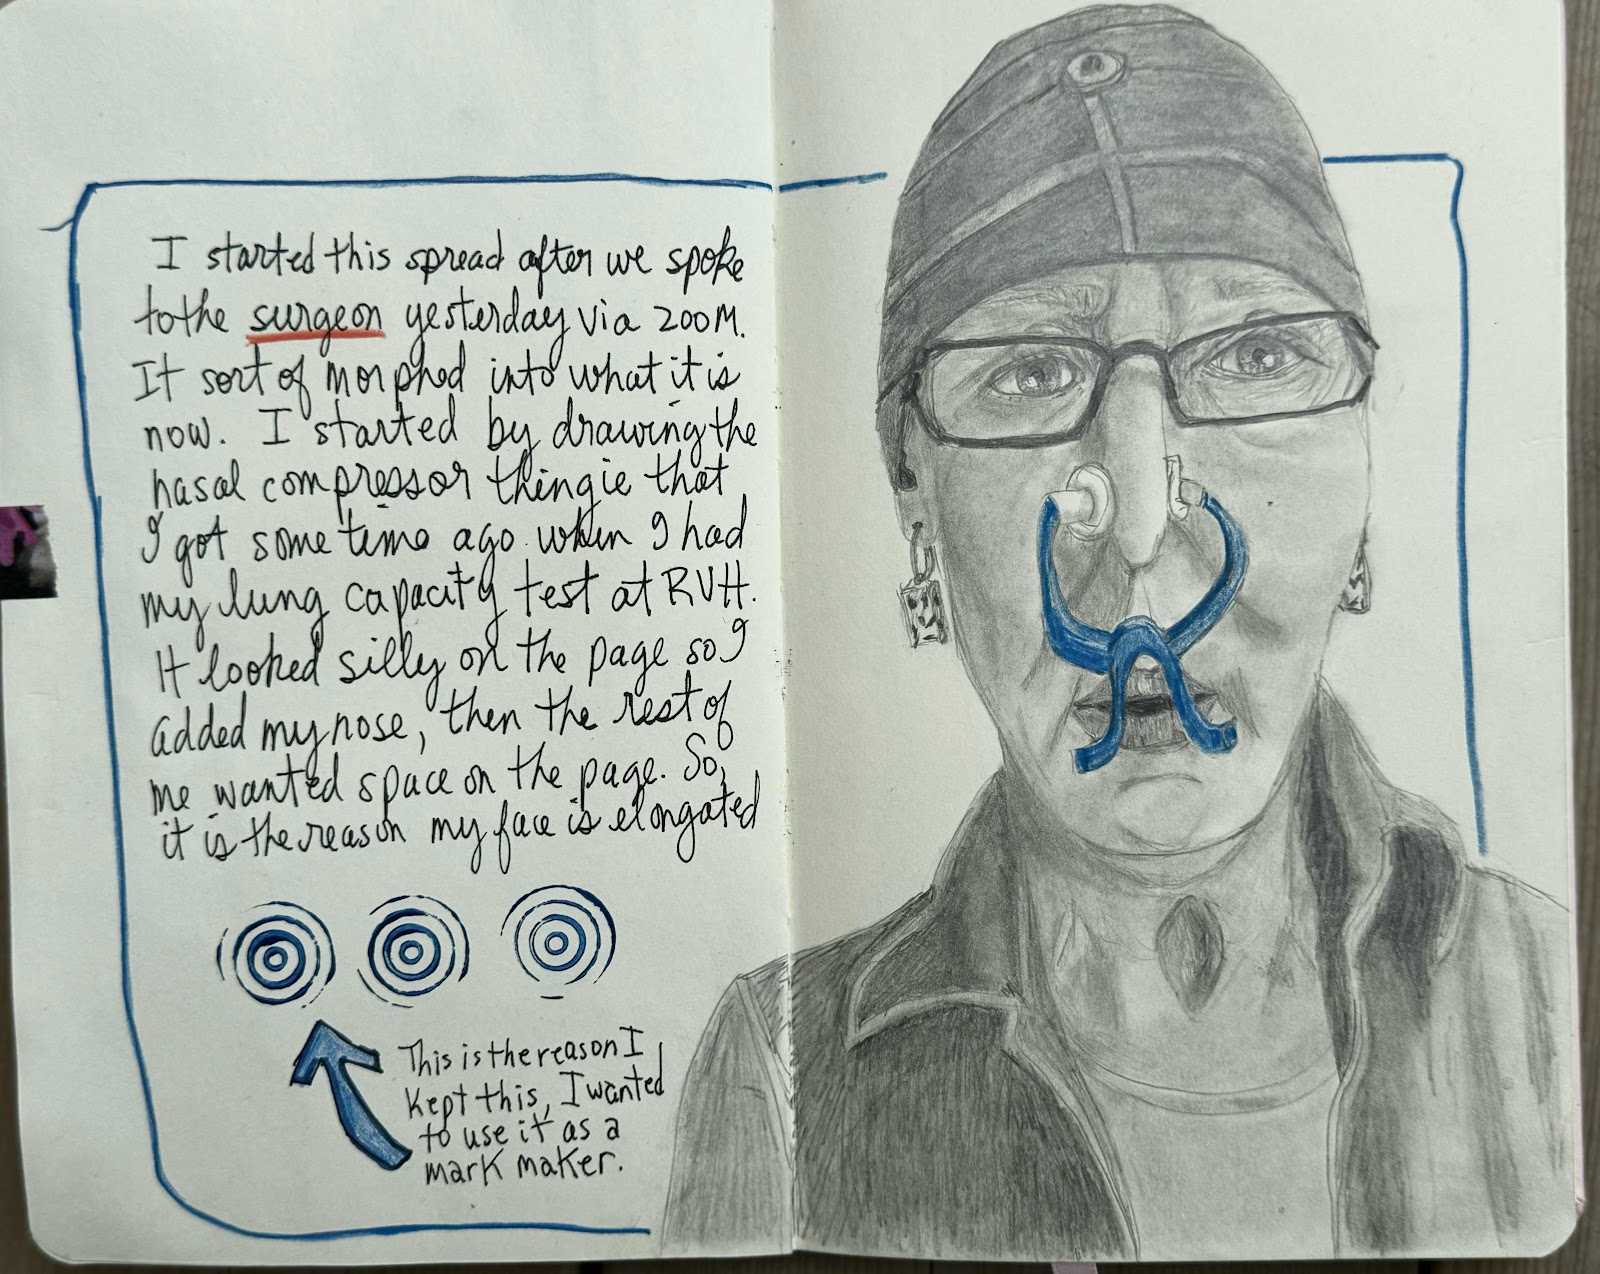 I started this spread after we spoke
to the surgeon yesterday via ZOOM.
It sort of morphed into what it is
now. I started by drawing the
nasal compressor thingie that
I got some time ago when I had
my lung capacity test at RVH.
It looked silly on the page so I
added my nose, then the rest of
me wanted space on the page. So,
it is the reason my face is elongated
This is the reason I
kept this, I wanted
to use it as a
mark maker.